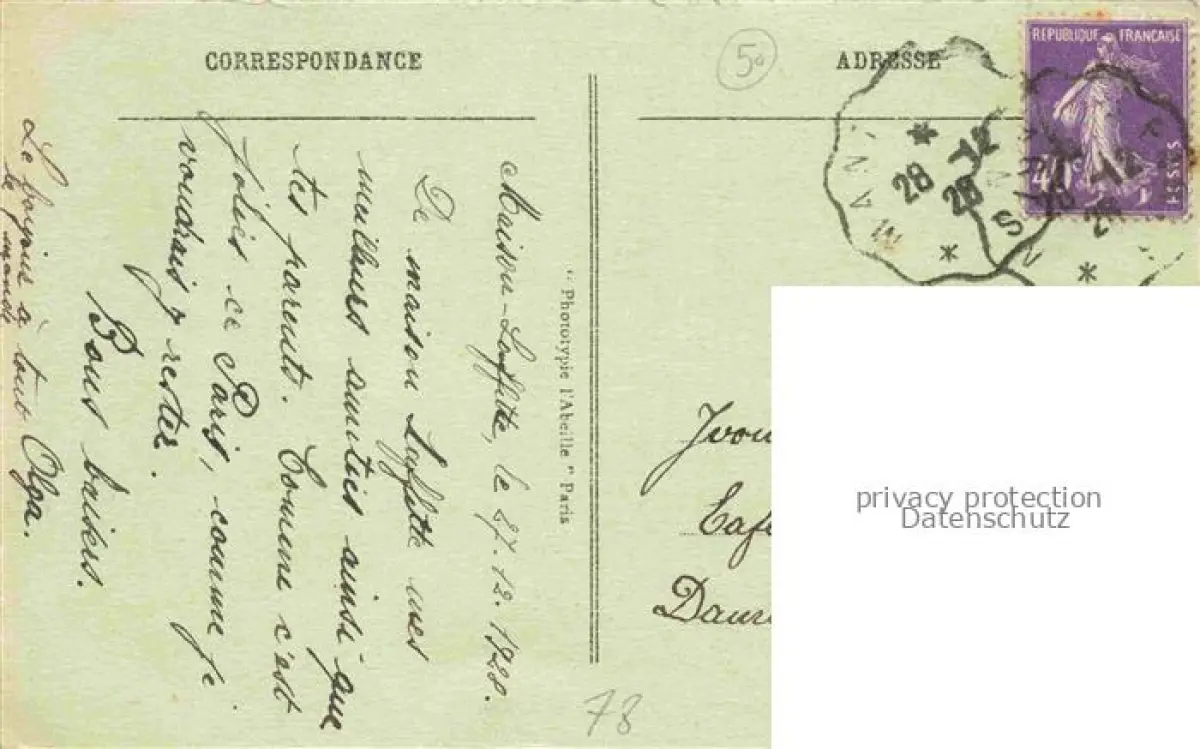 CORRESPONDANCE
ADRESSE
50
RÉPUBLIQUE FRANÇAISE
POSTES
28 -12
28
MAN
Maison-Laffitte, le 27.12.1928.
De maison Laffitte mes
meilleurs amitiés ainsi que
tes parents. Comme c'est
jolies ce Paris, comme je
voudrais y rester.
Bons baisers.
Olga.
Le bonjour à tout
le monde
" Phototypie l'Abeille " Paris
Yvon
Caf
Daur
78
privacy protection
Datenschutz